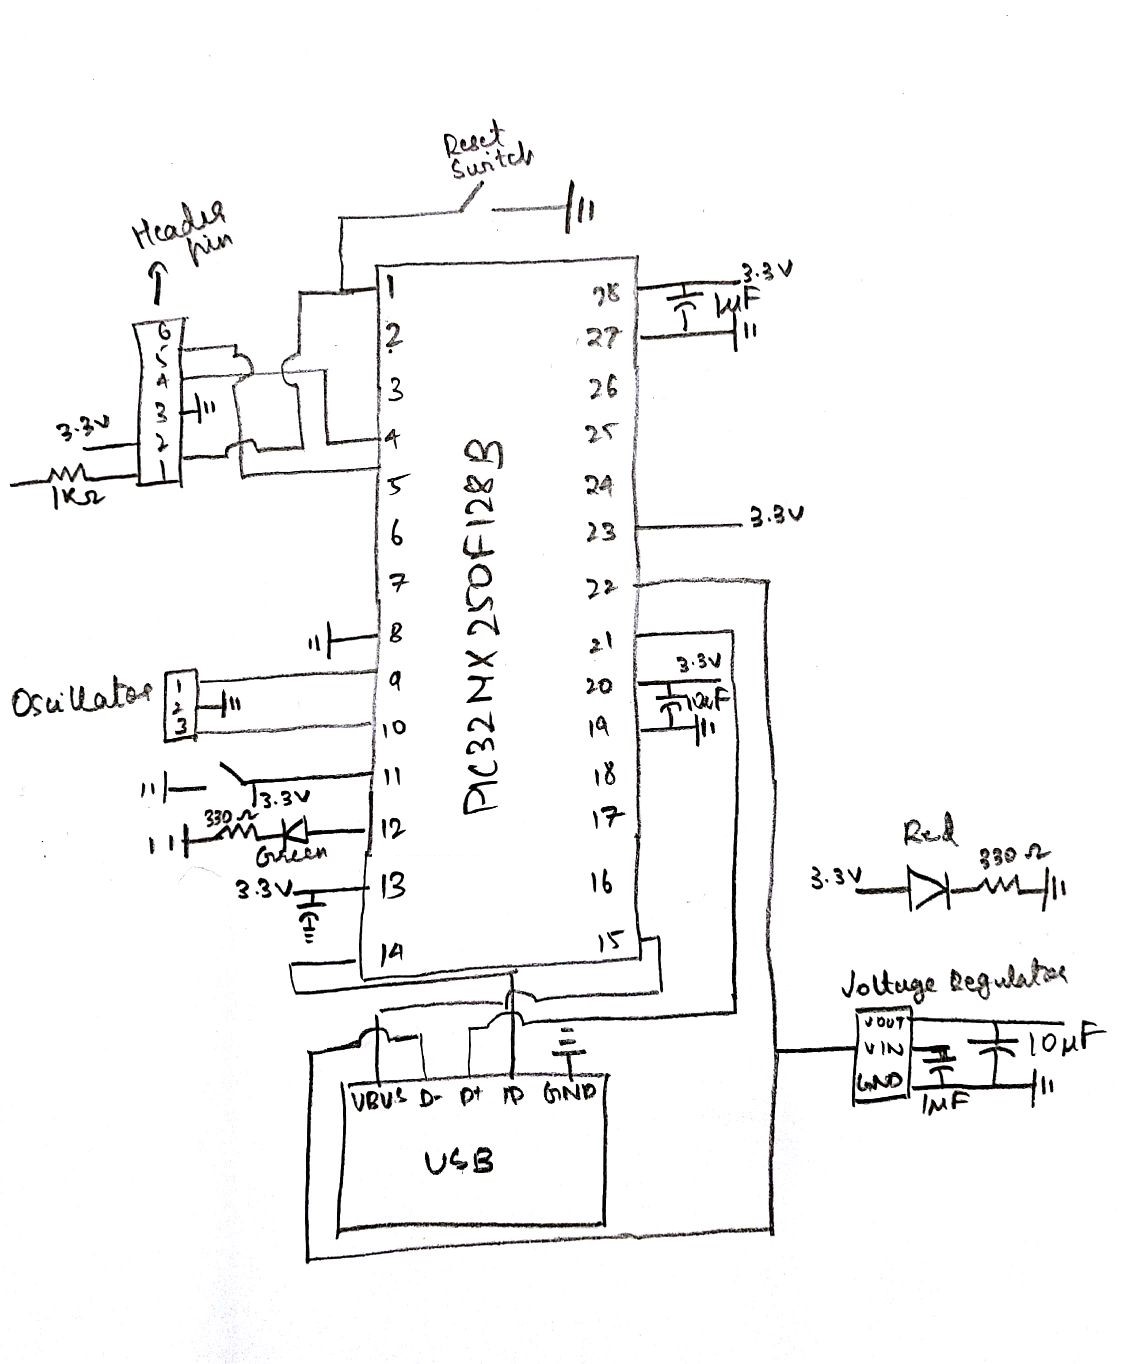 Reset
Switch
Header
pin
6
5
4
3
2
1
3.3V
1KΩ
1
2
3
4
5
6
7
8
9
10
11
12
13
14
28
27
26
25
24
23
22
21
20
19
18
17
16
15
PIC32MX250F128B
3.3V
1μF
3.3V
3.3V
10μF
Oscillator
1
2
3
3.3V
330Ω
Green
3.3V
Red
3.3V
330Ω
Voltage Regulator
VOUT
VIN
GND
10μF
1μF
VBUS D- D+ ID GND
USB